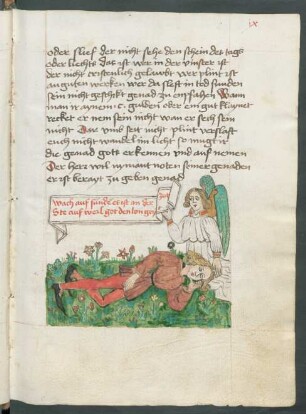 x
oder slief der nicht sehe den schein der tags
oder liechts das ist wer in der vinster ist
der nicht cristenlich gelawbt wer plint ist
an guten werken wer da slefft in tod sunden
sein nicht geschikt genad zu enpfahen Wann
man it aynem c guldein oder ein gut
rekket er nem sein nicht wan er sech sein
nicht Dar vmb seit nicht plint verslaft
euch nicht wandel im licht so mugt ir
die genad gots erkennen vnd auf nemen
Der herr wol nymant noten seiner genaden
er ist berayt zu geben genad
wach auf sunder es ist an der
Ste auf weil got den lon